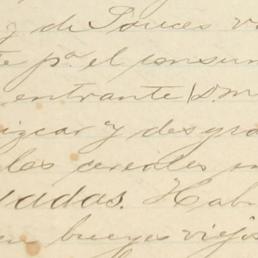 y de Souces v
te pa. el consum
entrante p.m
izcar y desgra
los cereales en
vadas. Hab
ue bueyes viejos